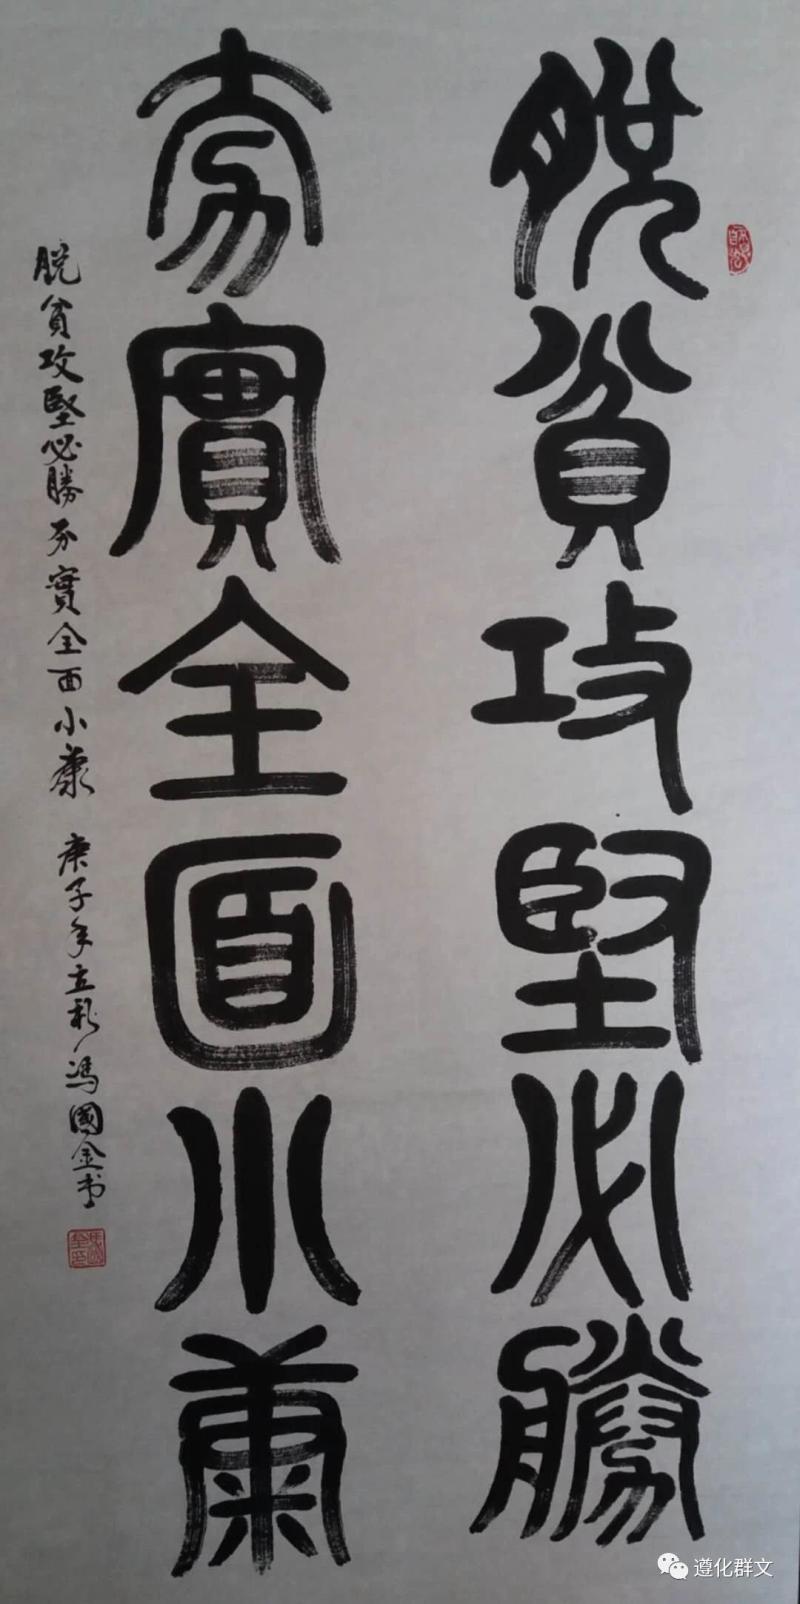 脱貧攻堅必勝
夯實全面小康
脱貧攻堅必勝夯實全面小康 庚子年立秋馮國金书
遵化群文